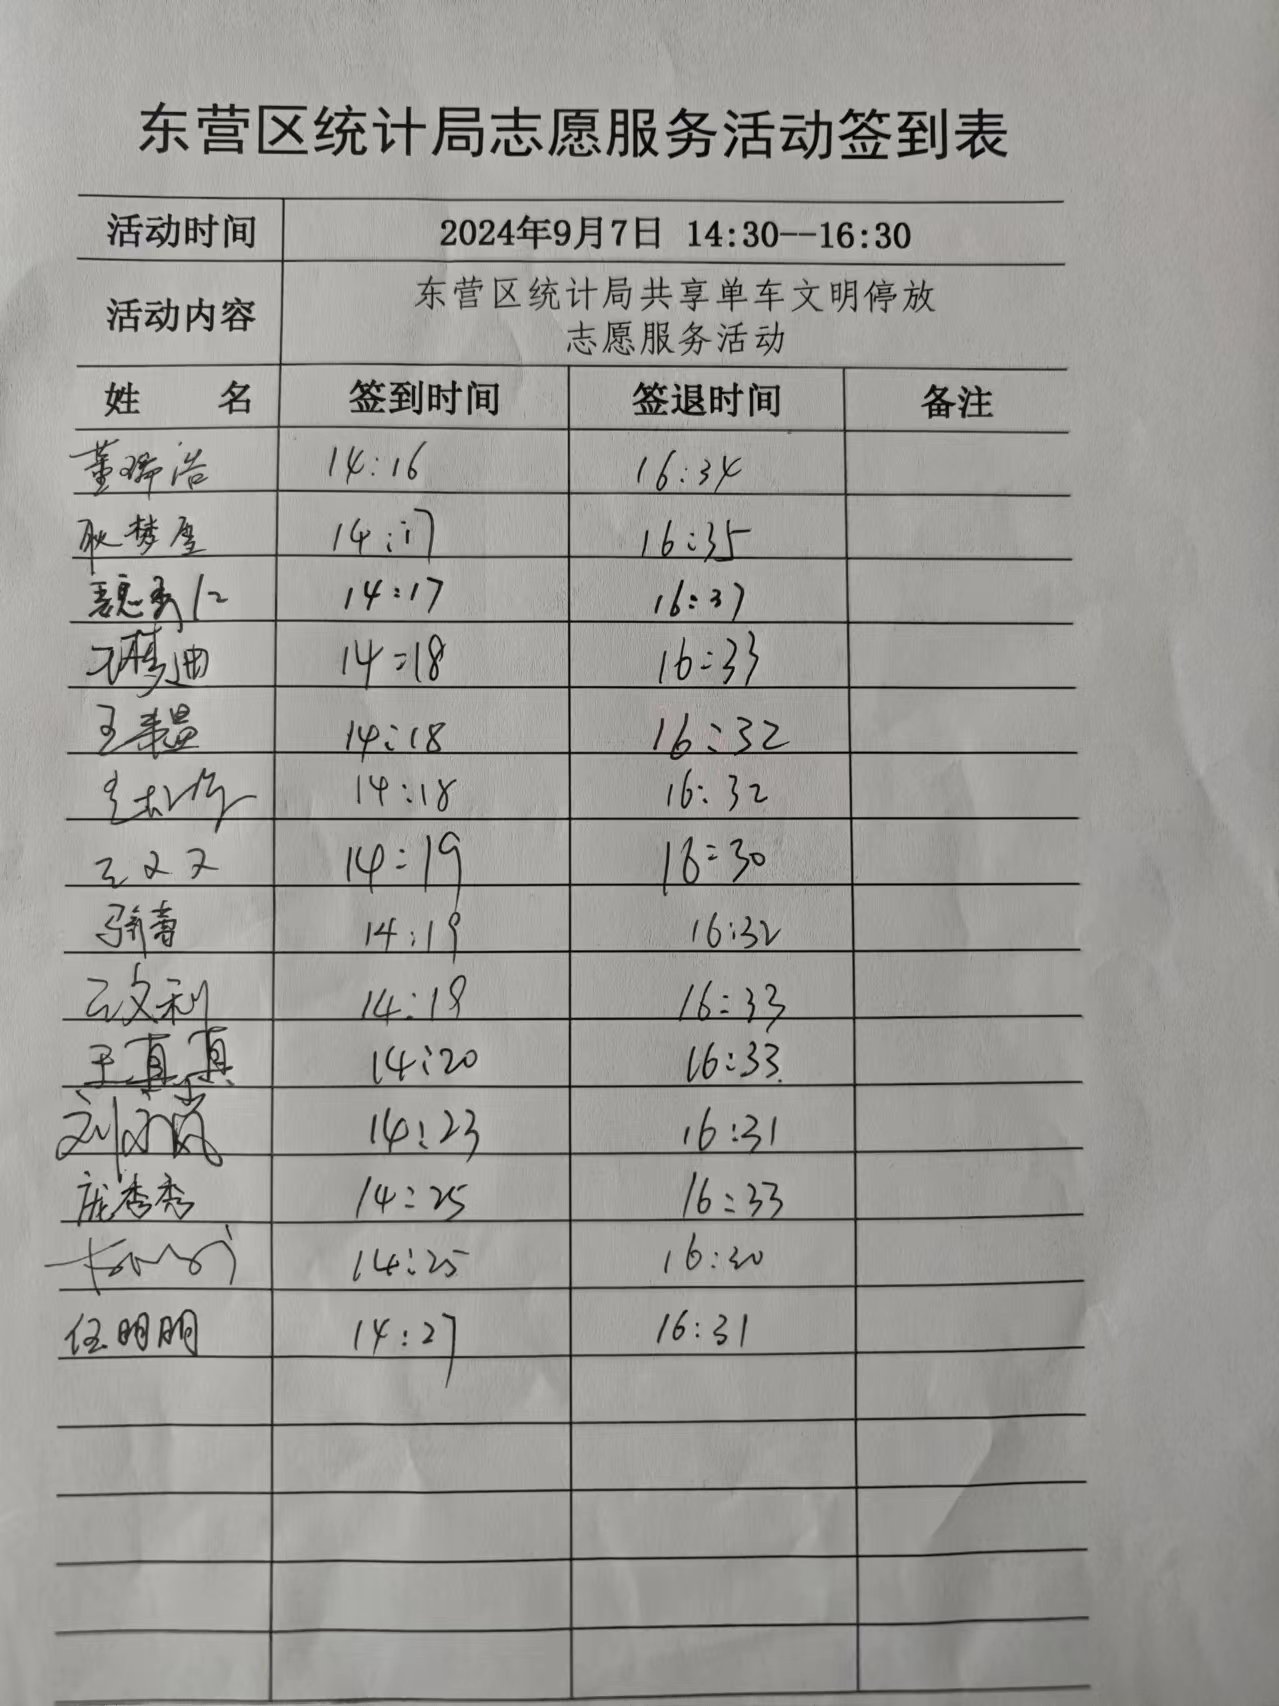 东营区统计局志愿服务活动签到表
活动时间 2024年9月7日 14:30--16:30
活动内容 东营区统计局共享单车文明停放
志愿服务活动
姓 名 签到时间 签退时间 备注
董瑞浩 14:16 16:34
耿梦 14:17 16:35
14:17 16:37
梦迪 14:18 16:33
王 14:18 16:32
14:18 16:32
王文文 14:19 16:30
14:19 16:32
王文利 14:19 16:33
王真真 14:20 16:33
刘 14:23 16:31
庞秀秀 14:25 16:33
14:25 16:30
任明明 14:27 16:31